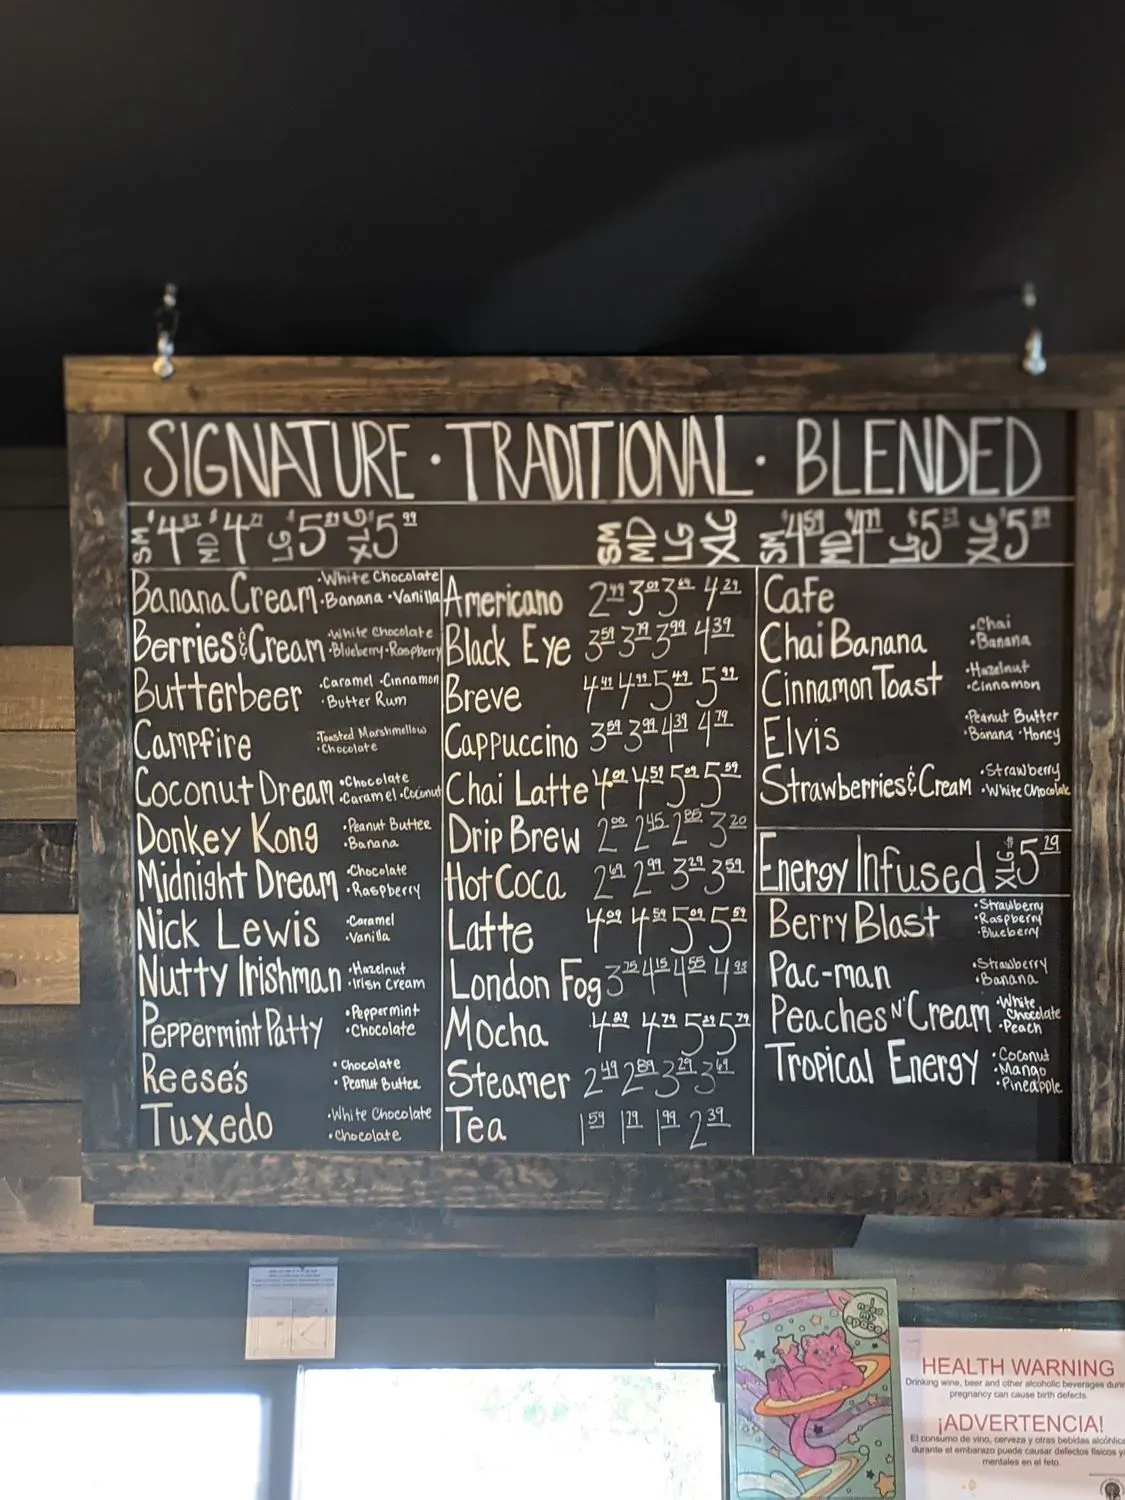 SIGNATURE · TRADITIONAL · BLENDED
SM $4 MD $4 LG $5 XLG $5 99
SM MD LG XLG
SM $4 59 MD $4 LG $5 XLG $5
Banana Cream ·White Chocolate
·Banana ·Vanilla
Berries & Cream ·White Chocolate
·Blueberry ·Raspberry
Butterbeer ·Caramel ·Cinnamon
·Butter Rum
Campfire ·Toasted Marshmellow
·Chocolate
Coconut Dream ·Chocolate
·Caramel ·Coconut
Donkey Kong ·Peanut Butter
·Banana
Midnight Dream ·Chocolate
·Raspberry
Nick Lewis ·Caramel
·Vanilla
Nutty Irishman ·Hazelnut
·Irish Cream
Peppermint Patty ·Peppermint
·Chocolate
Reese's ·Chocolate
·Peanut Butter
Tuxedo ·White Chocolate
·Chocolate
Americano 2 3 3 4 29
Black Eye 3 59 3 79 3 99 4 39
Breve 4 4 99 5 49 5 99
Cappuccino 3 59 3 99 4 39 4 79
Chai Latte 4 09 4 59 5 09 5 59
Drip Brew 2 00 2 45 2 85 3 20
Hot Coca 2 69 2 99 3 29 3 59
Latte 4 09 4 59 5 09 5 59
London Fog 3 75 4 15 4 55 4 95
Mocha 4 29 4 79 5 29 5 79
Steamer 2 49 2 89 3 29 3 69
Tea 1 59 1 79 1 99 2 39
Cafe
Chai Banana ·Chai
·Banana
Cinnamon Toast ·Hazelnut
·Cinnamon
Elvis ·Peanut Butter
·Banana ·Honey
Strawberries & Cream ·Strawberry
·White Chocolate
Energy Infused XLG $5 29
Berry Blast ·Strawberry
·Raspberry
·Blueberry
Pac-man ·Strawberry
·Banana
Peaches N' Cream ·White
Chocolate
·Peach
Tropical Energy ·Coconut
·Mango
·Pineapple
I
need
my
space
HEALTH WARNING
Drinking wine, beer and other alcoholic beverages
pregnancy can cause birth defects.
¡ADVERTENCIA!
El consumo de vino, cerveza y otras bebidas
durante el embarazo puede causar defectos físicos y
mentales en el feto.